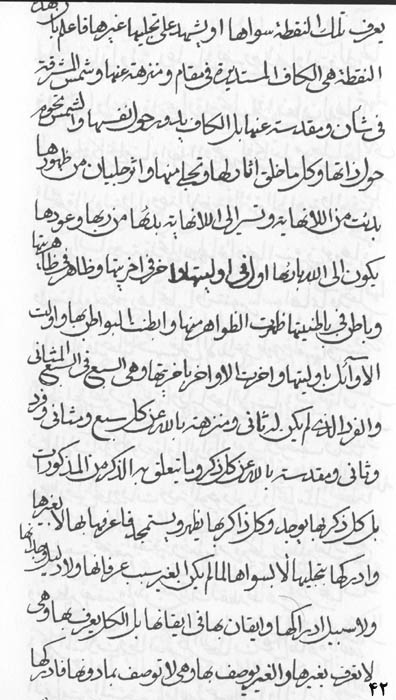 يعرف تلك النقطة سواها او يشهد على تجليها غيرها فاعلم بان هذه
النقطة هى الكاف المستديرة فى مقام و منزهة عنها و شمس المشرقة
فى شأن و مقدسة عنها بل الكاف يدور حول نفسها و الشمس يحوم
حول ذاتها و كل ما خلق اثارها و تجلى منها و اثر جليان من ظهورها
بدئت من اللانهاية و تسير الى اللانهاية بدئها من ربها و عودها
يكون الى الله بارئها اول فى اوليتها و اخر فى اخريتها و ظاهر فى ظاهريتها
و باطن فى باطنيتها ظهرت الظواهر منها و ابطنت البواطن بها و اولت
الاوائل باوليتها و اخرت الاواخر باخريتها و هى السبع فى السبع المثانى
و الفرد الذى لم يكن له ثانى و منزهة بالله عن كل سبع و مثانى و فرد
و ثانى و مقدسة بالله عن كل ذكر و ما يتعلق به الذكر من المذكورات
بل كل ذكر بها يوجد و كل ذاكر بها يظهر و يستمجد فاعرفها بها لا بغيرها
و ادركها بتجليها لا بسواها لما لم يكن لغير سبيل عرفانها و لا دليل وجدانها
و لا سبيل ادراكها و ايقان هانى ايقانها بل الكل يعرف بها و هى
لا تعرف بغيرها و الغير يوصف بها و هى لا توصف بما دونها فادركها
۴۲